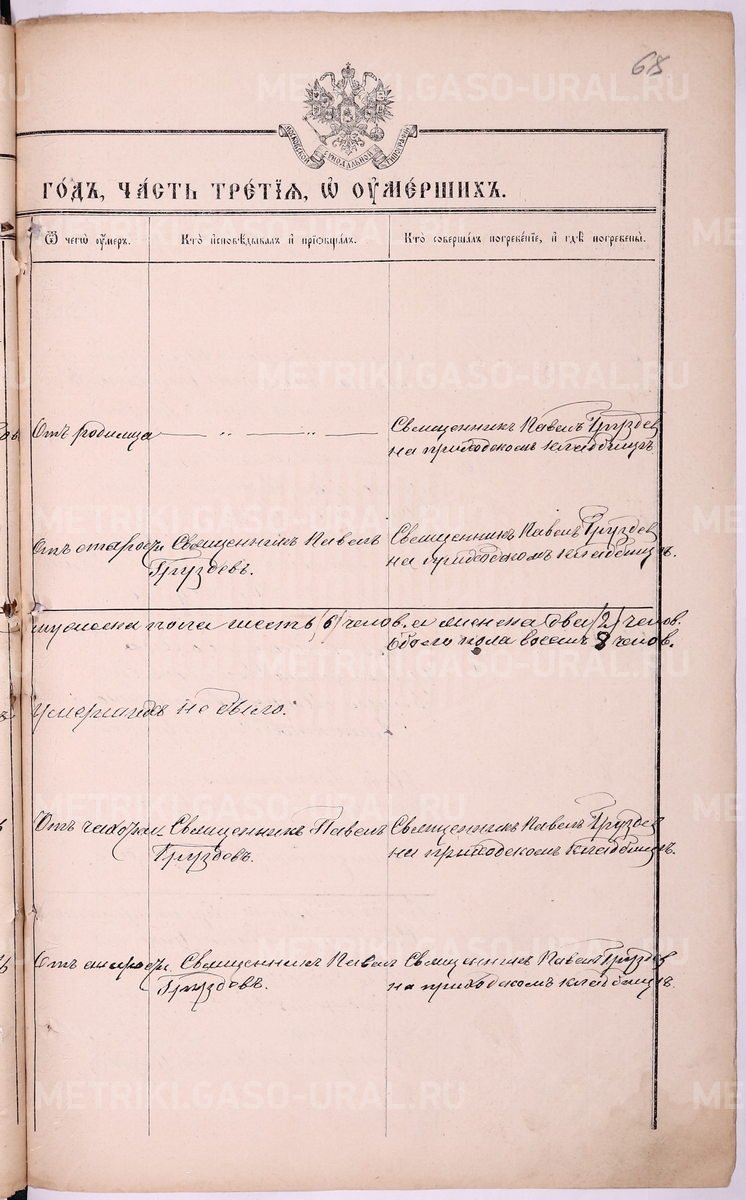 68
МОСКОВСКОЙ СѴНОДАЛЬНОЙ ТИПОГРАФІИ
го́дъ, ча́сть тре́тїѧ, ѡ҆ ᲂу҆ме́ршихъ.
Ѿ чегѡ̀ ᲂу҆́меръ.
Кто̀ и҆сповѣ́дывалъ и҆ прїѡбща́лъ.
Кто̀ соверша́лъ погребе́нїе, и҆ гдѣ̀ погребены̀.
Отъ родимца — „ — „ —
Священникъ Павелъ Груздев
на приходскомъ кладбищѣ
Отъ старости
Священникъ Павелъ
Груздевъ.
Священникъ Павелъ Груздев
на приходскомъ кладбищѣ.
мужеска пола шесть (6) челов. а женска два (2) челов.
обоего пола восемь 8 челов.
Умершихъ не было.
Отъ чахотки
Священникъ Павелъ
Груздевъ.
Священникъ Павелъ Груздев
на приходскомъ кладбищѣ.
Отъ старости
Священникъ Павел
Груздевъ.
Священникъ Павелъ Груздев
на приходскомъ кладбищѣ.
METRIKI.GASO-URAL.RU